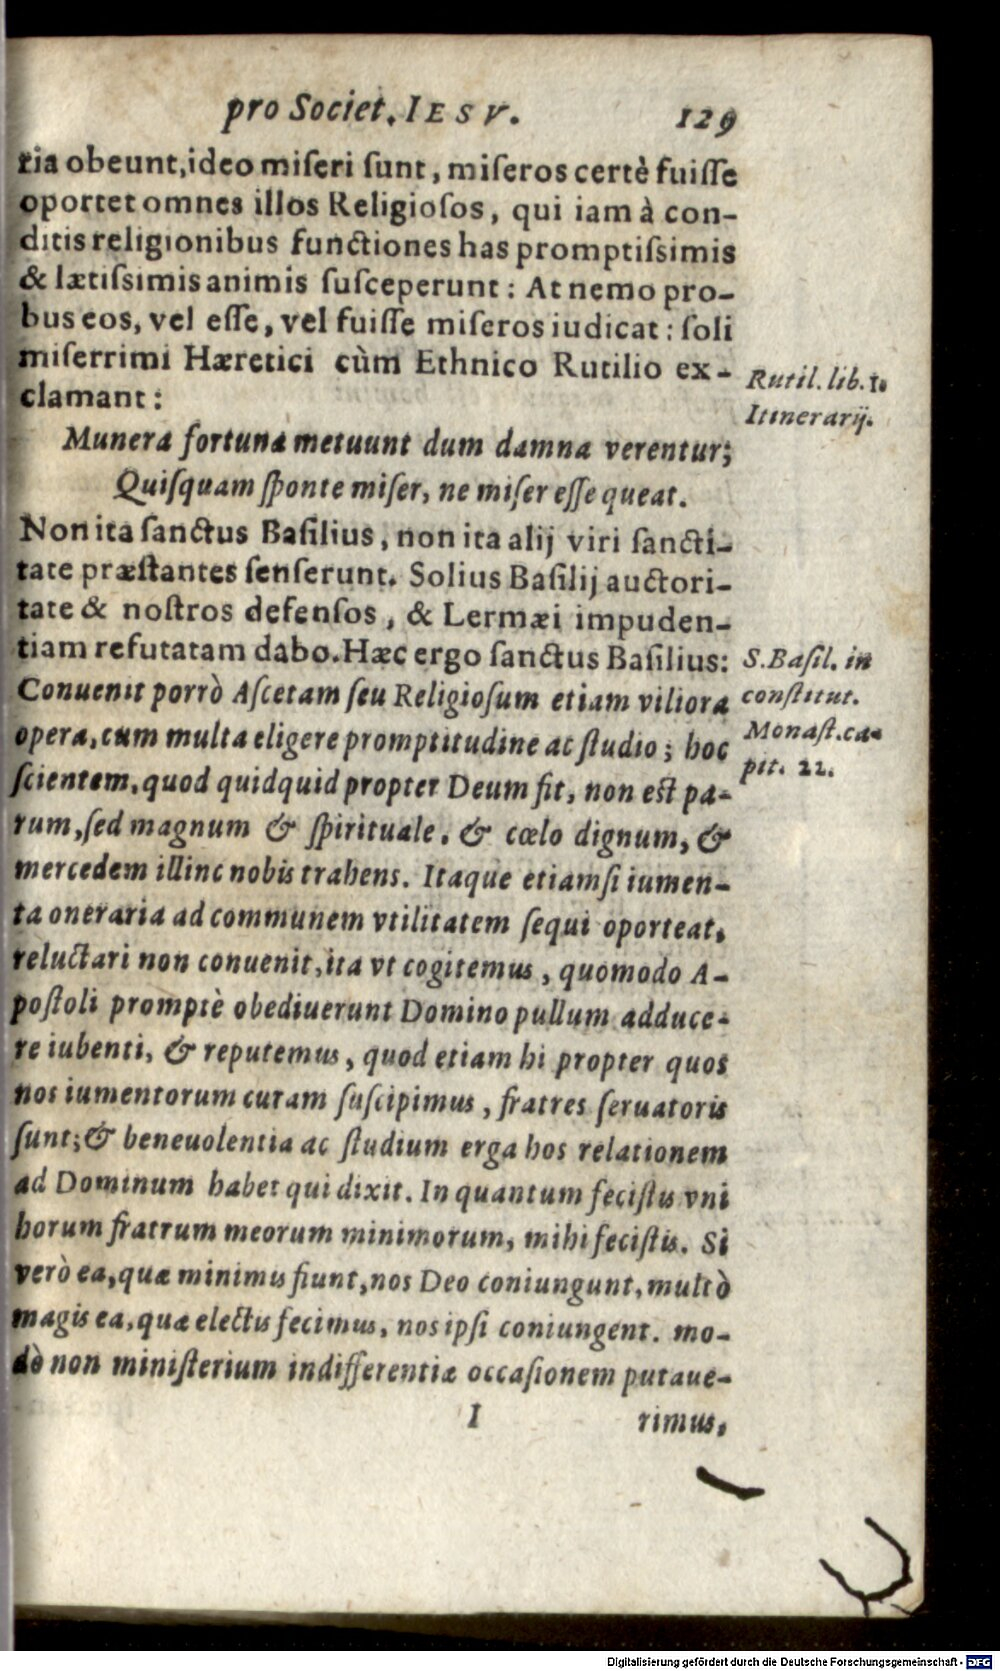 pro Societ. IESV. 129
ria obeunt, ideo miseri sunt, miseros certè fuisse
oportet omnes illos Religiosos, qui iam à con-
ditis religionibus functiones has promptissimis
& lætissimis animis susceperunt: At nemo pro-
bus eos, vel esse, vel fuisse miseros iudicat: soli
miserrimi Hæretici cùm Ethnico Rutilio ex-
clamant:
Rutil. lib. 1.
Itinerarij.
Munera fortunæ metuunt dum damna verentur;
Quisquam sponte miser, ne miser esse queat.
Non ita sanctus Basilius, non ita alij viri sancti-
tate præstantes senserunt. Solius Basilij auctori-
tate & nostros defensos, & Lermæi impuden-
tiam refutatam dabo. Hæc ergo sanctus Basilius:
S. Basil. in
constitut.
Monast. ca-
pit. 22.
Conuenit porrò Ascetam seu Religiosum etiam viliora
opera, cum multa eligere promptitudine ac studio; hoc
scientem, quod quidquid propter Deum fit, non est pa-
rum, sed magnum & spirituale, & cœlo dignum, &
mercedem illinc nobis trahens. Itaque etiamsi iumen-
ta oneraria ad communem vtilitatem sequi oporteat,
reluctari non conuenit, ita vt cogitemus, quomodo A-
postoli promptè obediuerunt Domino pullum adduce-
re iubenti, & reputemus, quod etiam hi propter quos
nos iumentorum curam suscipimus, fratres seruatoris
sunt; & beneuolentia ac studium erga hos relationem
ad Dominum habet qui dixit. In quantum fecistis vni
horum fratrum meorum minimorum, mihi fecistis. Si
verò ea, quæ minimis fiunt, nos Deo coniungunt, multò
magis ea, quæ electis fecimus, nos ipsi coniungent. mo-
dò non ministerium indifferentiæ occasionem putaue-
I rimus,
Digitalisierung gefördert durch die Deutsche Forschungsgemeinschaft - DFG